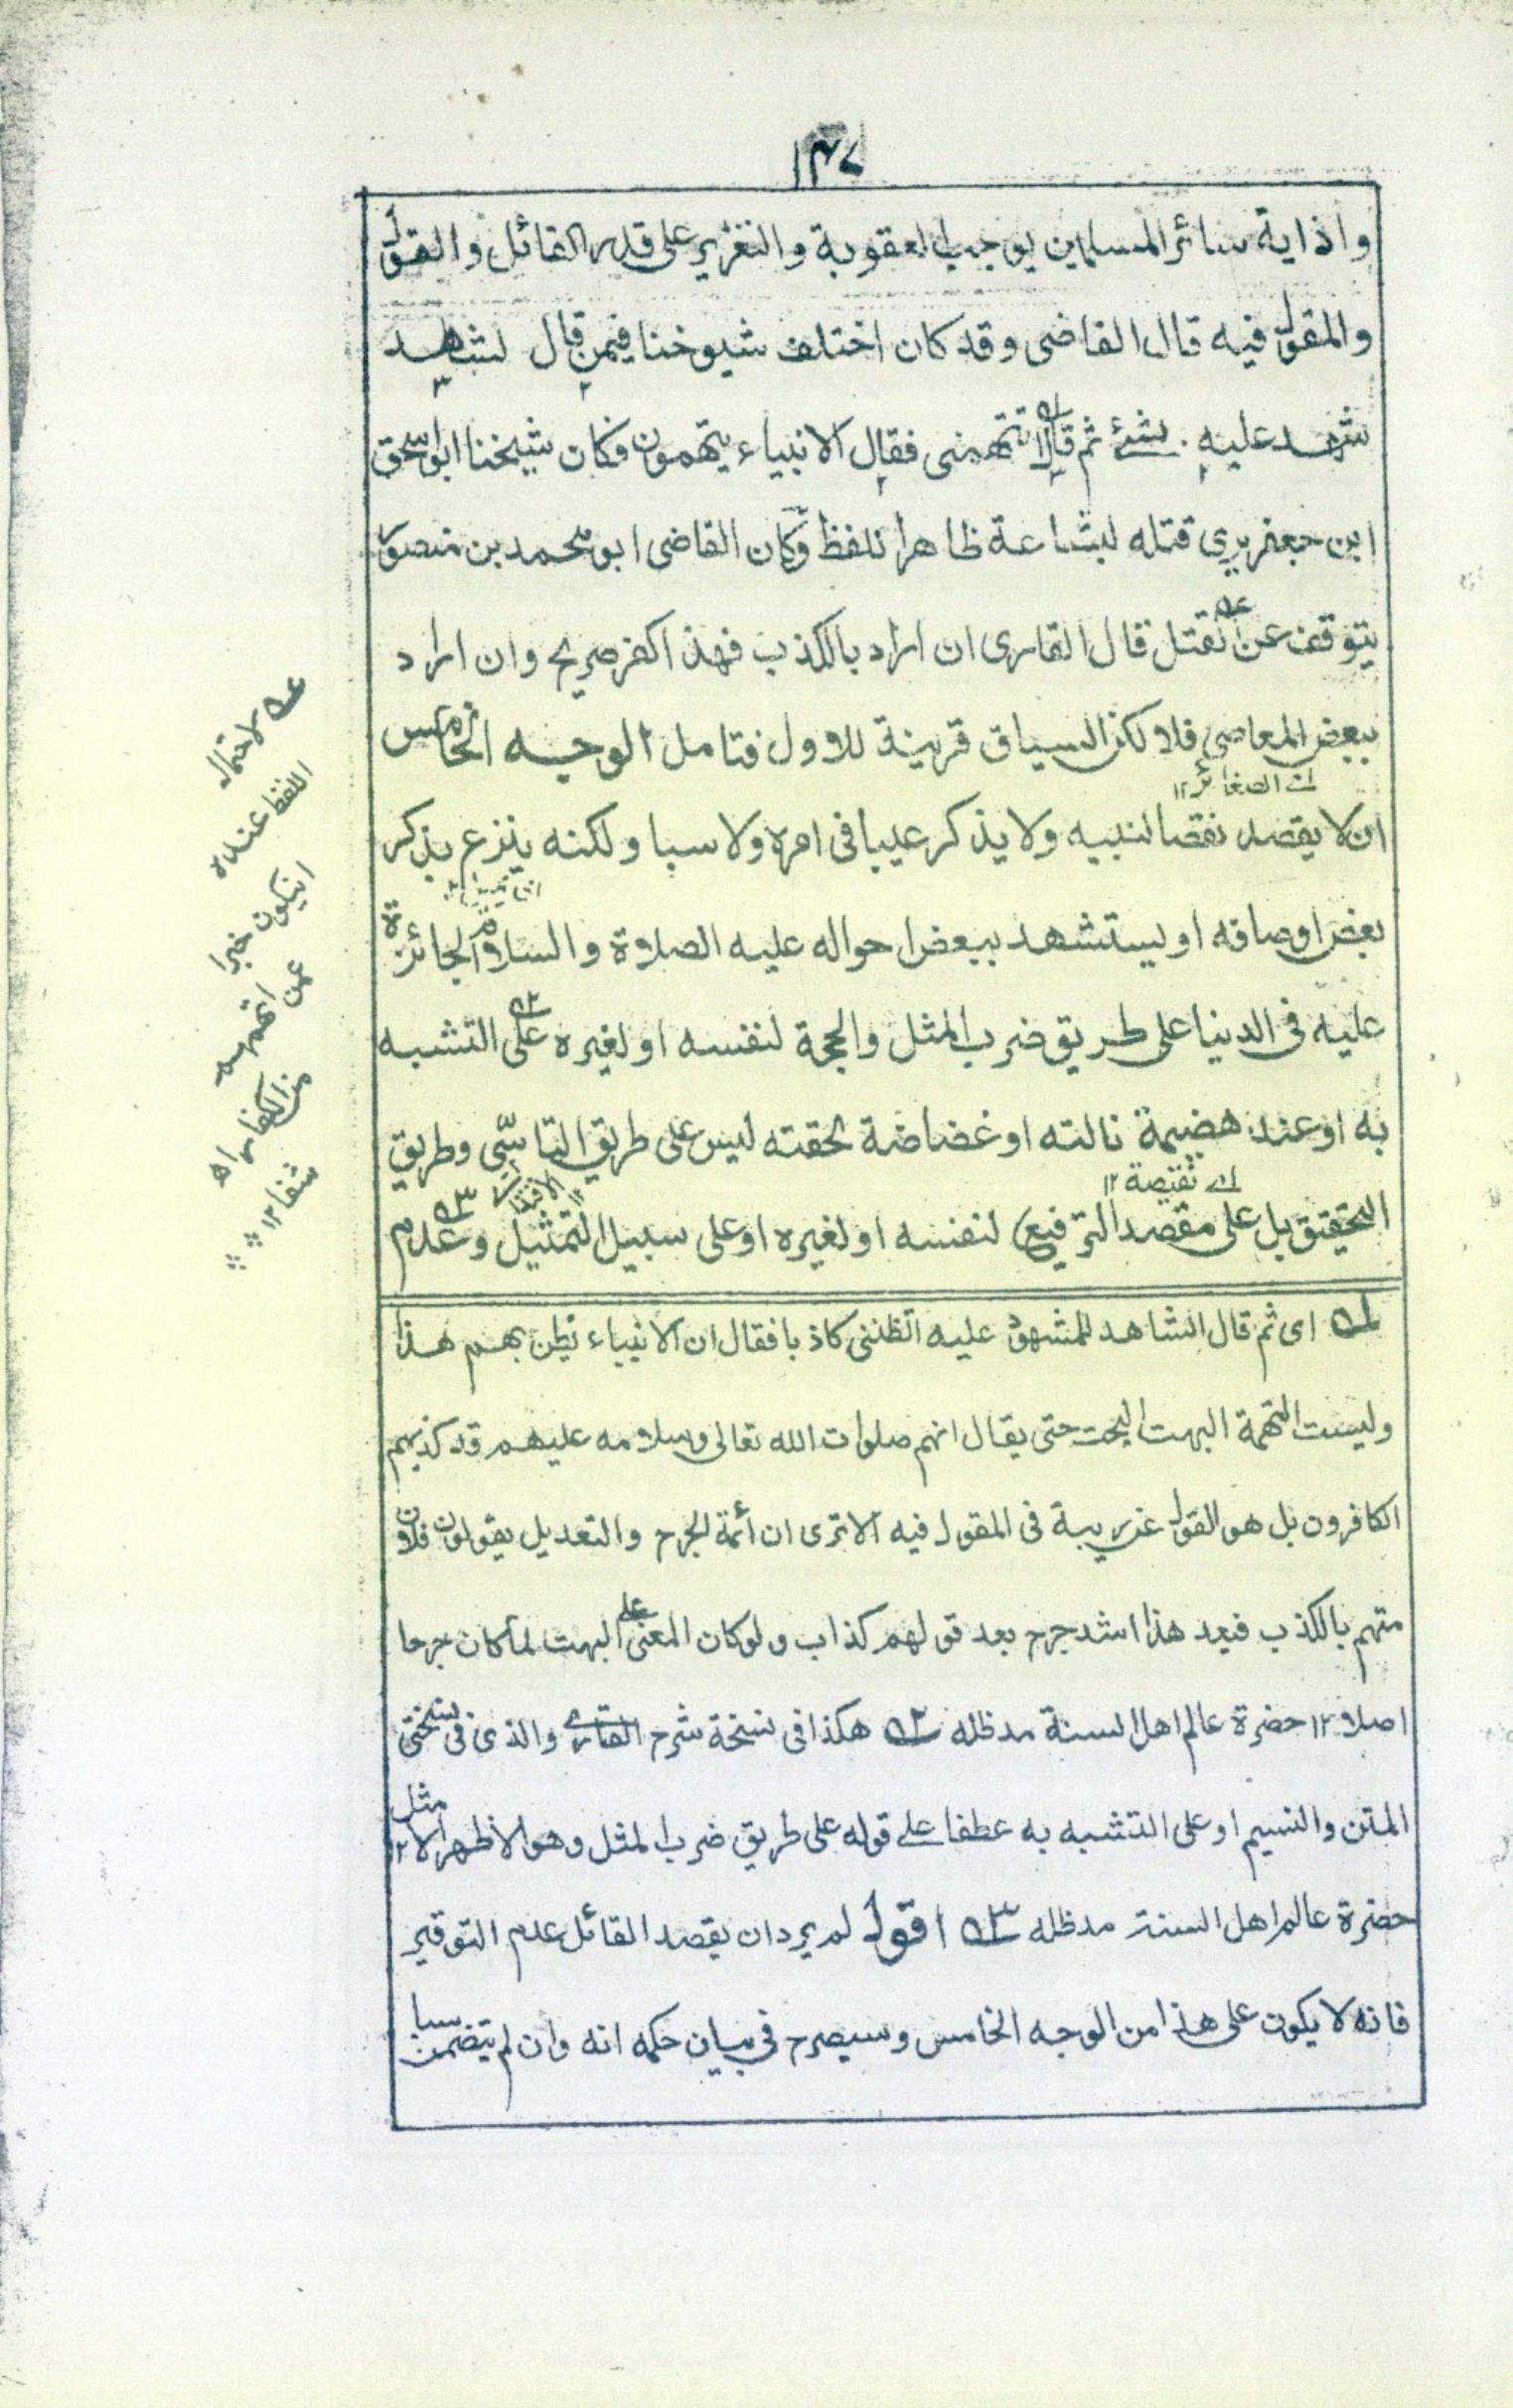 ١٤٧
واذاية سائر المسلمين يوجب العقوبة والتعزير على قدر القائل والقول
والمقول فيه قال القاضى وقد كان اختلف شيوخنا فيمن قال لشاهد
شهد عليه بشئ ثم قال تتهمنى فقال الانبياء يتهمون فكان شيخنا ابو اسحق
ابن جعفر يرى قتله لبشاعة ظاهر اللفظ وكان القاضى ابو محمد بن منصور
يتوقف عن القتل قال القارى ان اراد بالكذب فهذا كفر صريح وان اراد
ببعض المعاصى فلا لكن السياق قرينة للاول فتامل الوجه الخامس
اى الصغائر ١٢
ان لا يقصد نقصا لنبيه ولا يذكر عيبا فى امره ولا سبا ولكنه ينزع بذكر
بعض اوصافه او يستشهد ببعض احواله عليه الصلاة والسلام الجائزة
عليه فى الدنيا على طريق ضرب المثل والحجة لنفسه او لغيره على التشبه
به او عند هضيمة نالته او غضاضة لحقته ليس على طريق التاسّى وطريق
اى نقيصة ١٢
التحقيق بل على مقصد الترفيع لنفسه او لغيره او على سبيل التمثيل وعدم
لاحتمال
اللفظ عنده
ان يكون خبرا
عمن اتهمهم
من الكفار اه
شفا ١٢
اى ثم قال الشاهد للمشهود عليه اتظننى كاذبا فقال ان الانبياء يظن بهم هذا
وليست التهمة البهت البحت حتى يقال انهم صلوات الله تعالى وسلامه عليهم قد كذبهم
الكافرون بل هو القول عن ريبة فى المقول فيه الا ترى ان أئمة الجرح والتعديل يقولون فلان
متهم بالكذب فيعد هذا اشد جرح بعد قولهم كذاب ولو كان المعنى على البهت لما كان جرحا
اصلا ١٢ حضرة عالم اهل السنة مدظله ٢ هكذا فى نسخة شرح القارى والذى فى نسختى
المتن والنسيم او على التشبه به عطفا على قوله على طريق ضرب المثل وهو الاظهر الامثل ١٢
حضرة عالم اهل السنة مدظله ٣ اقول لم يرد ان يقصد القائل عدم التوقير
فانه لا يكون على هذا من الوجه الخامس وسيصرح فى بيان حكمه انه وان لم يتضمن سبا